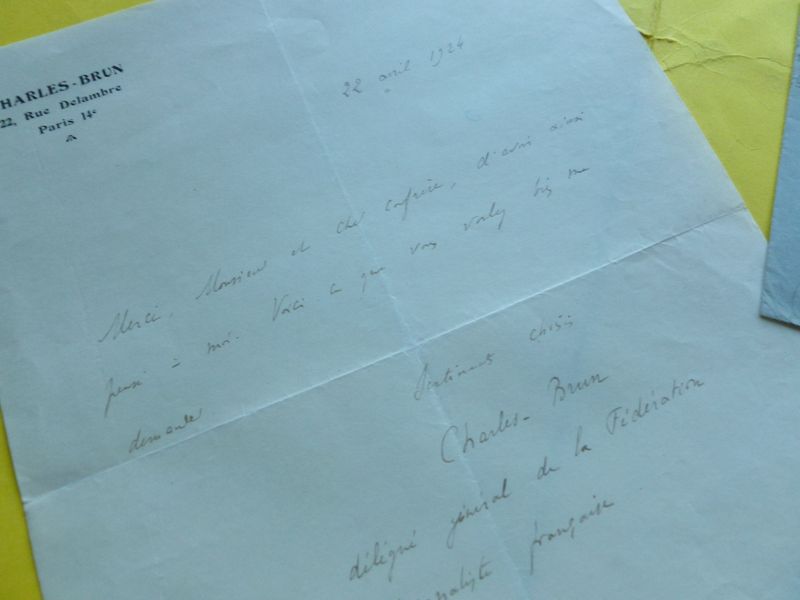 HARLES-BRUN
22, Rue Delambre
Paris 14e
22 avril 1924
Merci, Monsieur et cher confrère, d'avoir ainsi
pensé à moi. Voici ce que vous voulez bien me
demander
Sentiments choisis
Charles-Brun
délégué général de la Fédération
naliste française